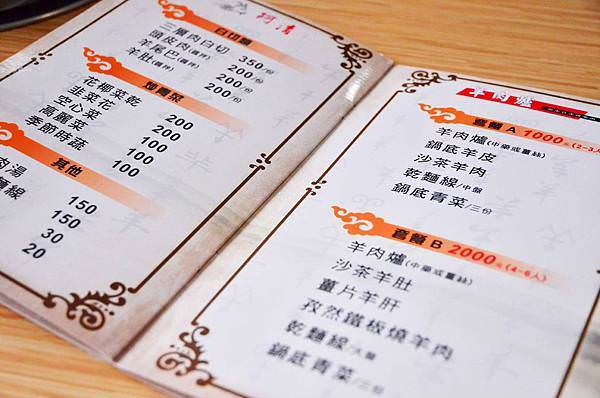 阿清
白切類
三層肉白切 350/份
頭皮肉(涼拌) 200/份
羊尾巴(涼拌) 200/份
羊肚(涼拌) 200/份
炒青菜
花椰菜乾 200
韭菜花 200
空心菜 100
高麗菜 100
季節時蔬 100
其他
肉湯 150
麵線 150
30
20
羊肉爐
套餐A 1000元(2-3人
羊肉爐(中藥或薑絲)
鍋底羊皮
沙茶羊肉
乾麵線/中盤
鍋底青菜/三份
套餐B 2000元(4-6人)
羊肉爐(中藥或薑絲)
沙茶羊肚
薑片羊肝
孜然鐵板燒羊肉
乾麵線/大盤
鍋底青菜/三份